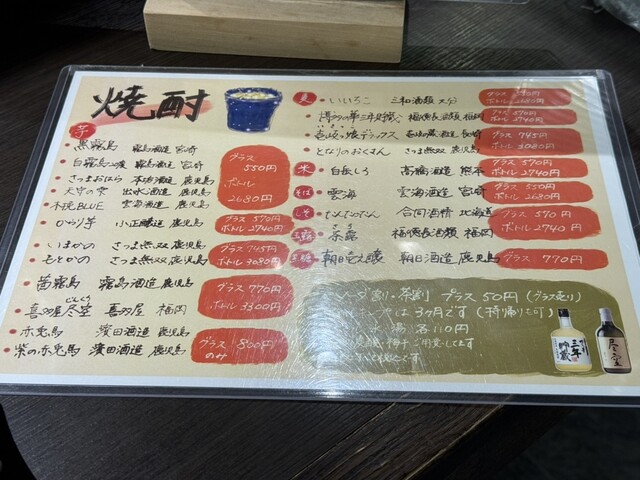 焼酎
芋
黒霧島 霧島酒造 宮崎
白霧島 霧島酒造 宮崎
さつまおはら 本坊酒造 鹿児島
天守の雫 出水酒造 鹿児島
木挽BLUE 雲海酒造
グラス
550円
ボトル
2680円
ひらり芋 小正醸造 鹿児島
グラス 570円
ボトル 2740円
いまかの さつま無双 鹿児島
もとかの さつま無双 鹿児島
グラス 745円
ボトル 3080円
茜霧島 霧島酒造 鹿児島
喜多屋尽空 喜多屋 福岡
グラス 770円
ボトル 3300円
赤兎馬 濱田酒造 鹿児島
紫の赤兎馬 濱田酒造 鹿児島
グラス 800円
のみ
麦
いいちこ 三和酒類 大分
ボトル 2680円
グラス 570円
ボトル 2740円
グラス 745円
ボトル 3080円
となりのおくさん さつま無双 鹿児島
米
白岳しろ 高橋酒造 熊本
グラス 570円
ボトル 2740円
そば
雲海 雲海酒造 宮崎
グラス 550円
ボトル 2680円
しそ
たんたかたん 合同酒精 北海道
グラス 570円
ボトル 2740円
茶露 福徳長酒類 福岡
黒糖
朝日 朝日酒造 鹿児島
グラス 770円
ソーダ割・茶割 プラス50円(グラス売り)
は3ヶ月です(持帰りも可)
水 湯 各110円
梅干 ご用意してます
三年
貯蔵
尽空